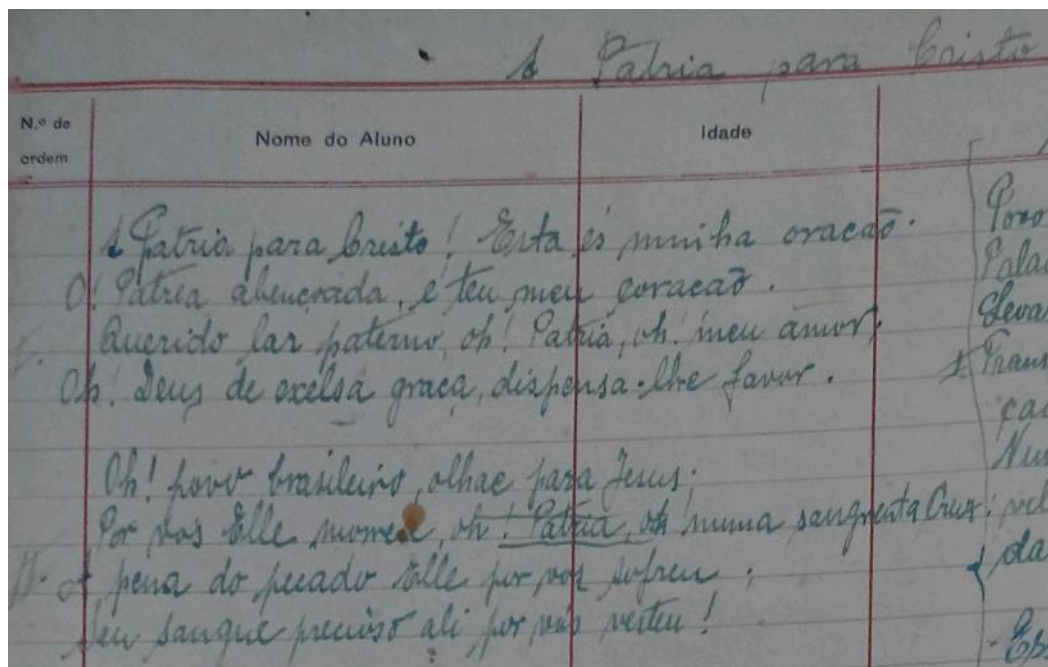 A Patria para Cristo
N.º de ordem
Nome do Aluno
Idade
A Patria para Cristo! Esta és minha oracaõ.
O! Patria abençoada, é teu meu coracaõ.
I. Querido lar paterno, oh! Patria, oh! meu amor,
Oh! Deus de excelsa graça, dispensa-lhe favor.
Oh! povo brasileiro, olhae para Jesus;
Por vos Elle morreu, oh! Patria, oh numa sangrenta Cruz;
II. A pena do pecado Elle por vos sofreu;
Seu sangue precioso ali por vós verteu!
Povo
Palac
Elevas
Trans
Nun
da